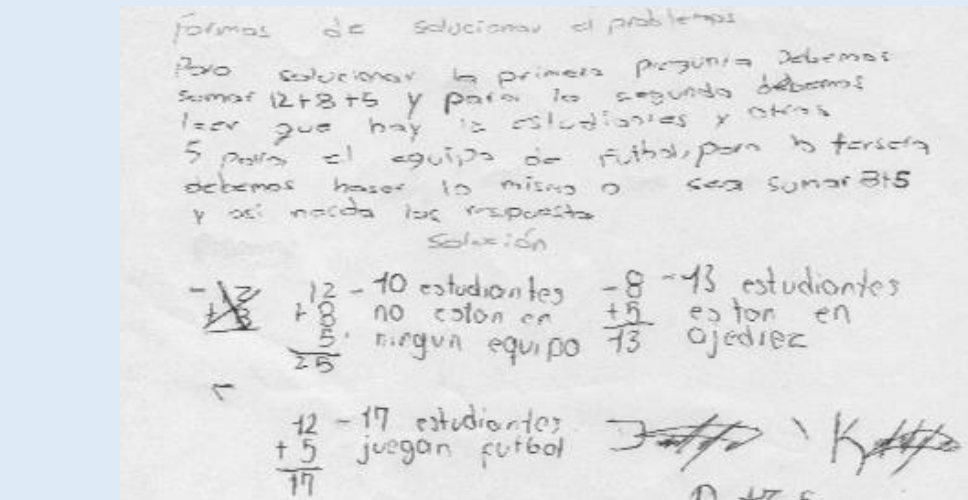 formas de solucionar el problemas
Para solucionar la primera pregunta debemos
sumar 12+8+5 y para la segunda debemos
leer que hay 12 estudiantes y otros
5 para el equipo de futbol, para la tersera
debemos haser lo mismo o sea sumar 8+5
y asi las respuesta
Solución
12 - 10 estudiantes - 8 - 13 estudiantes
+ 8 no estan en + 5 estan en
5 ningun equipo 13 ajedrez
25
12 - 17 estudiantes
+ 5 juegan futbol
17